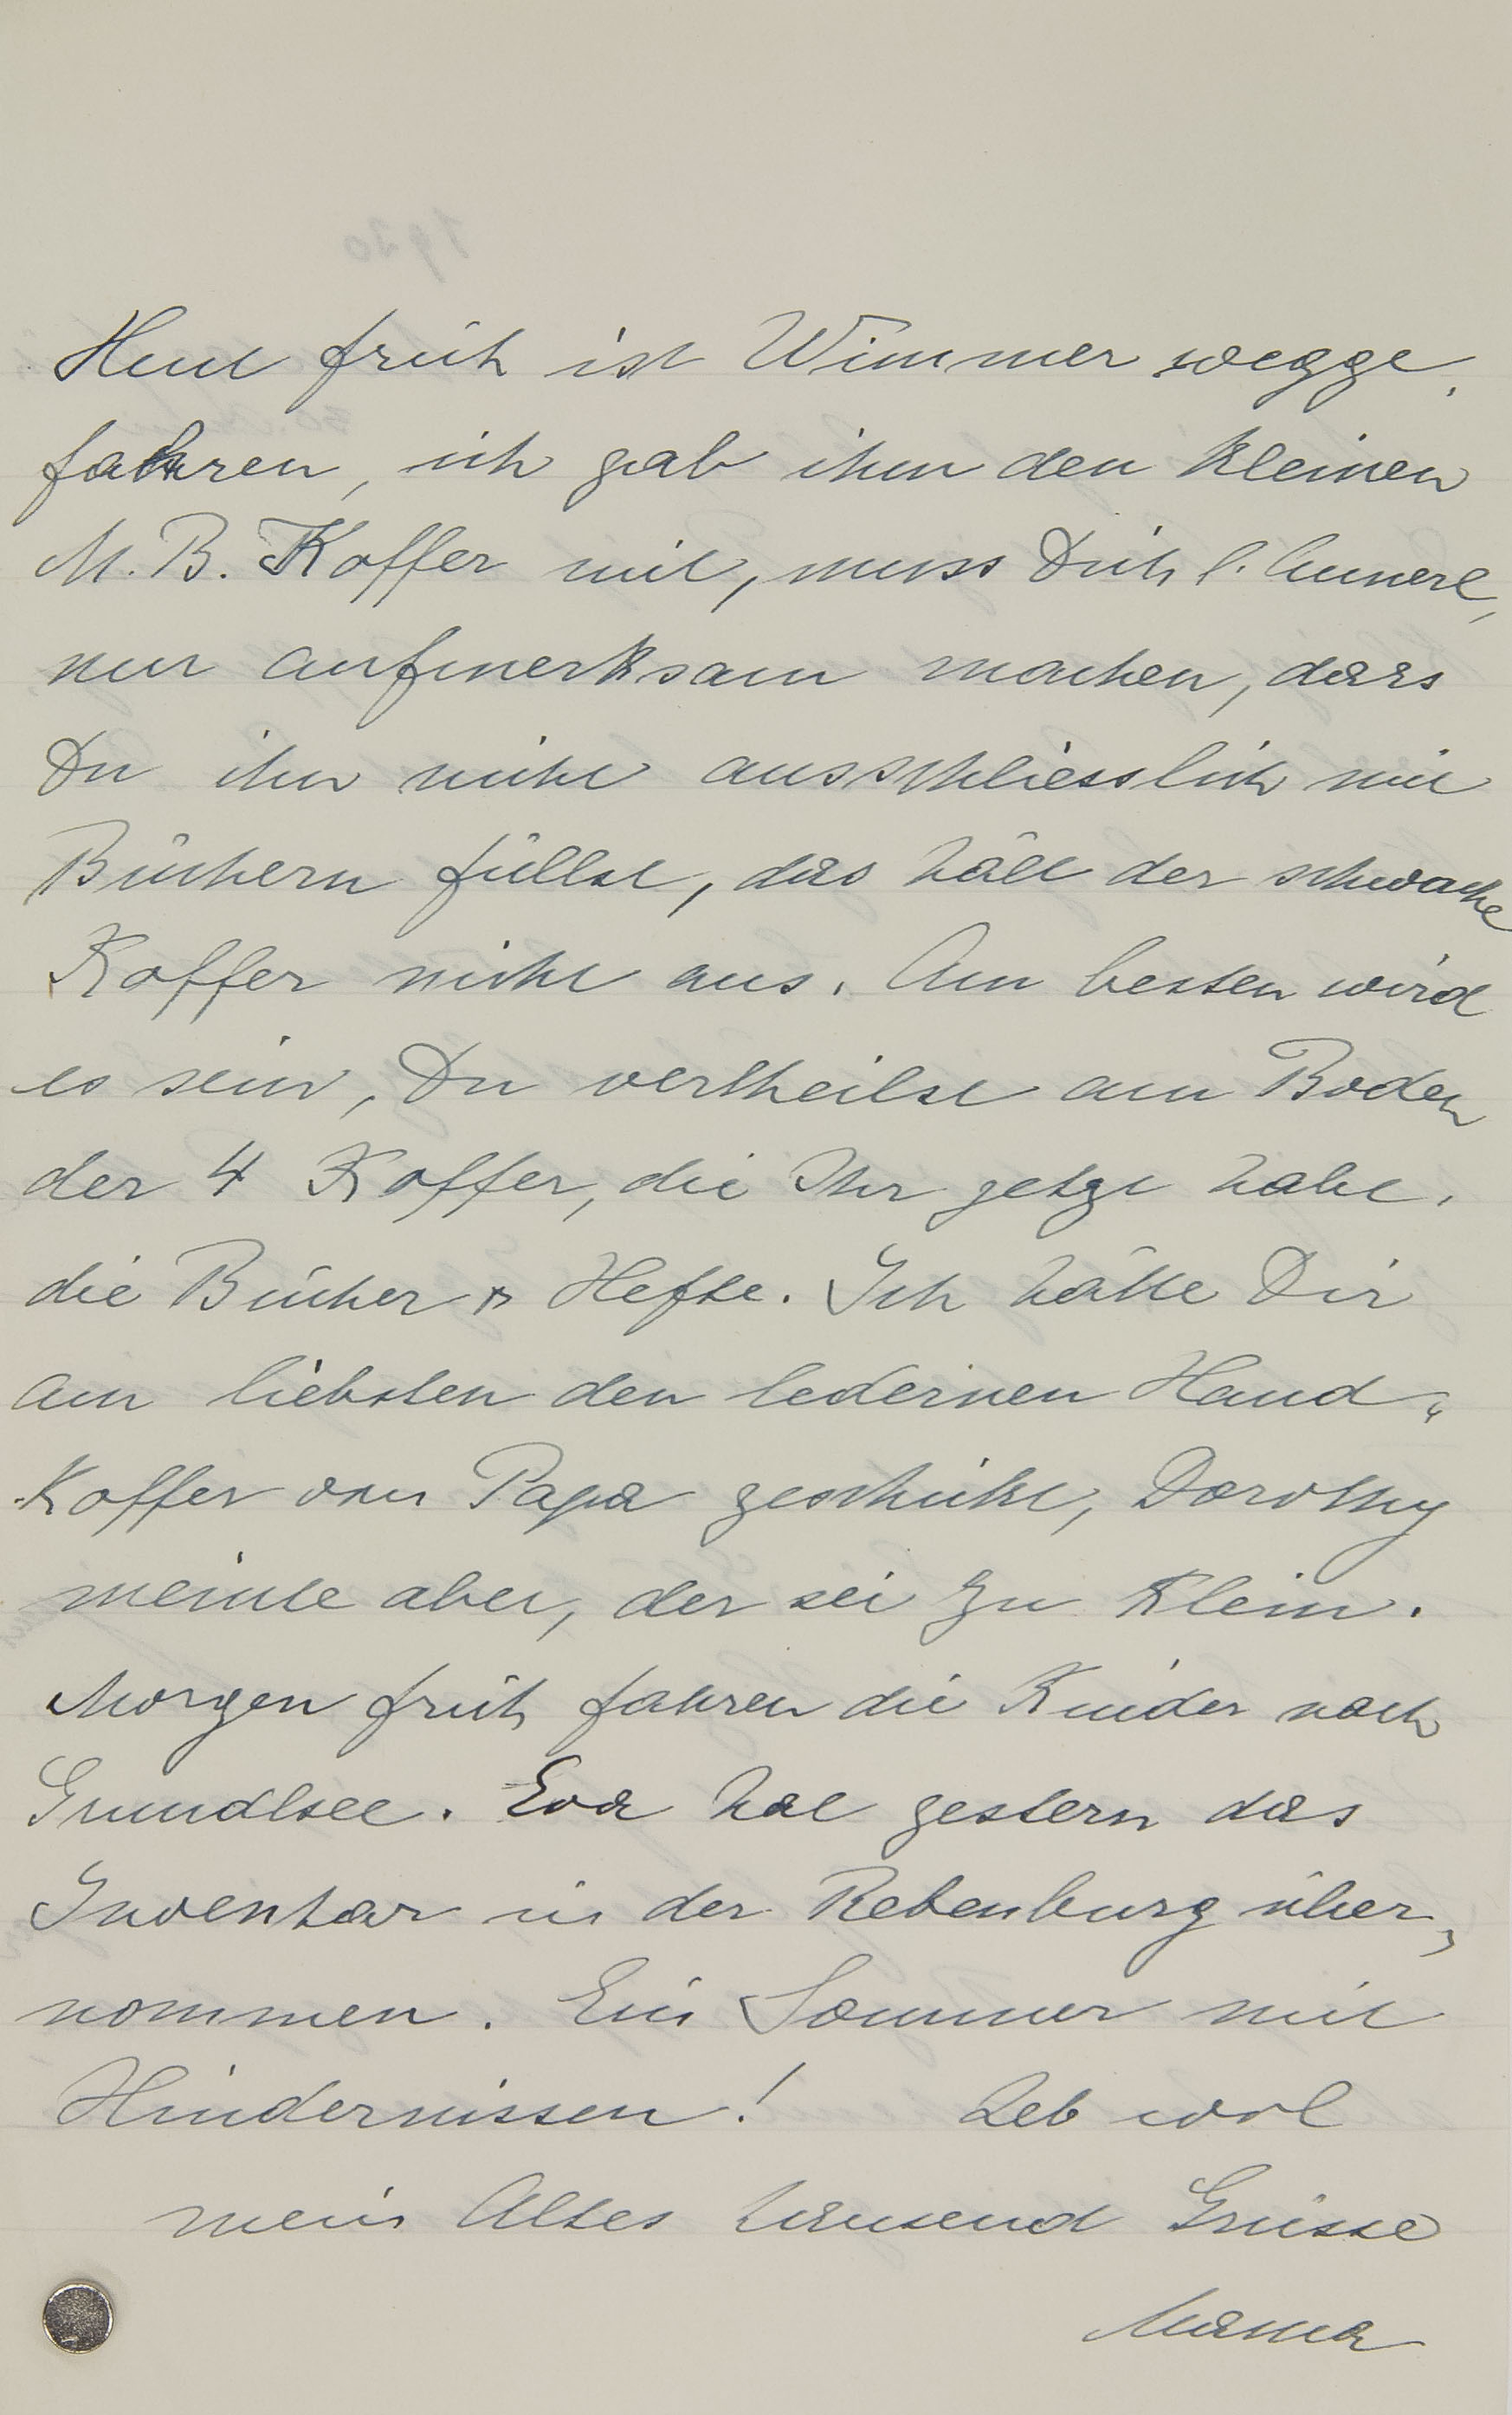 Heut früh ist Wimmer wegge-
fahren, ich gab ihm den kleinen
M. B. Koffer mit, muss Dich l. Annerl,
nur aufmerksam machen, dass
Du ihn nicht ausschliesslich mit
Büchern füllst, das hält der schwache
Koffer nicht aus. Am besten wird
es sein, Du vertheilst am Boden
der 4 Koffer, die Ihr jetzt habt,
die Bücher & Hefte. Ich hätte Dir
am liebsten den ledernen Hand-
koffer von Papa geschickt, Dorothy
meinte aber, der sei zu klein.
Morgen früh fahren die Kinder nach
Grundlsee. Eva hat gestern das
Inventar in der Rebenburg über-
nommen. Ein Sommer mit
Hindernissen! Leb wol
mein Altes tausend Grüsse
Mama